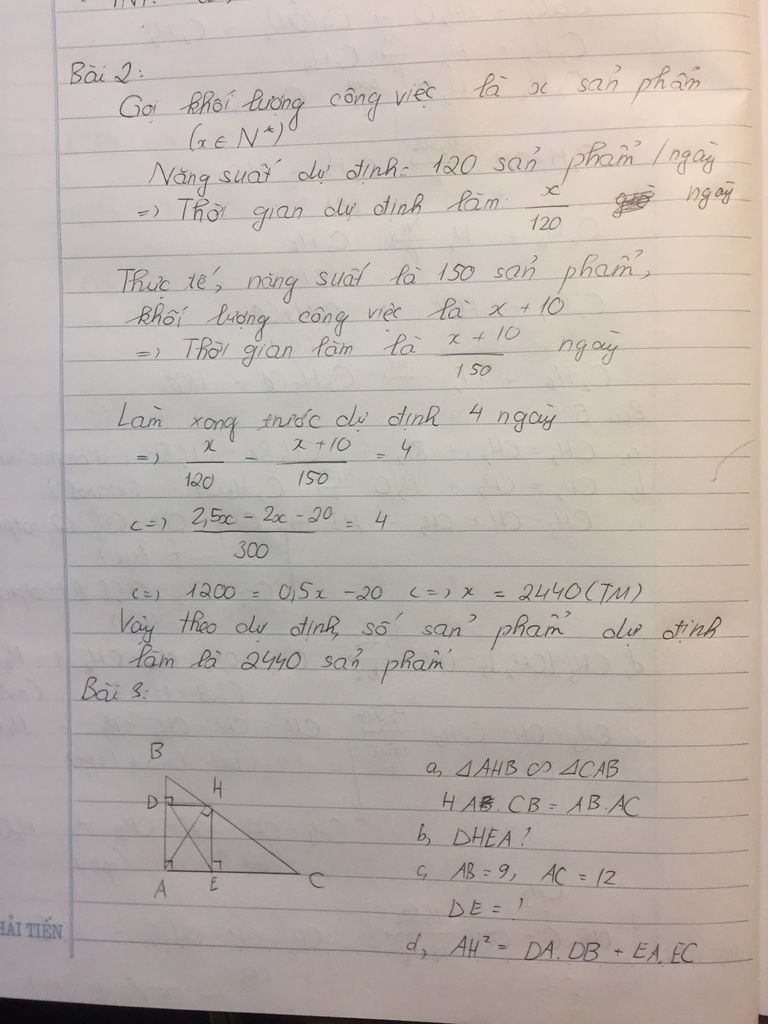 Bài 2:
Gọi khối lượng công việc là x sản phẩm
(x ∈ N*)
Năng suất dự định: 120 sản phẩm/ngày
=> Thời gian dự định làm x/120 ngày
Thực tế, năng suất là 150 sản phẩm,
khối lượng công việc là x + 10
=> Thời gian làm là (x + 10)/150 ngày
Làm xong trước dự định 4 ngày
=> x/120 - (x+10)/150 = 4
<=> (2,5x - 2x - 20)/300 = 4
<=> 1200 = 0,5x - 20 <=> x = 2440 (TM)
Vậy theo dự định, số sản phẩm dự định
làm là 2440 sản phẩm
Bài 3:
B
D H
A E C
a, ΔAHB ∽ ΔCAB
HA. CB = AB. AC
b, DHEA?
c, AB = 9, AC = 12
DE = ?
d, AH² = DA. DB + EA. EC
HẢI TIẾN